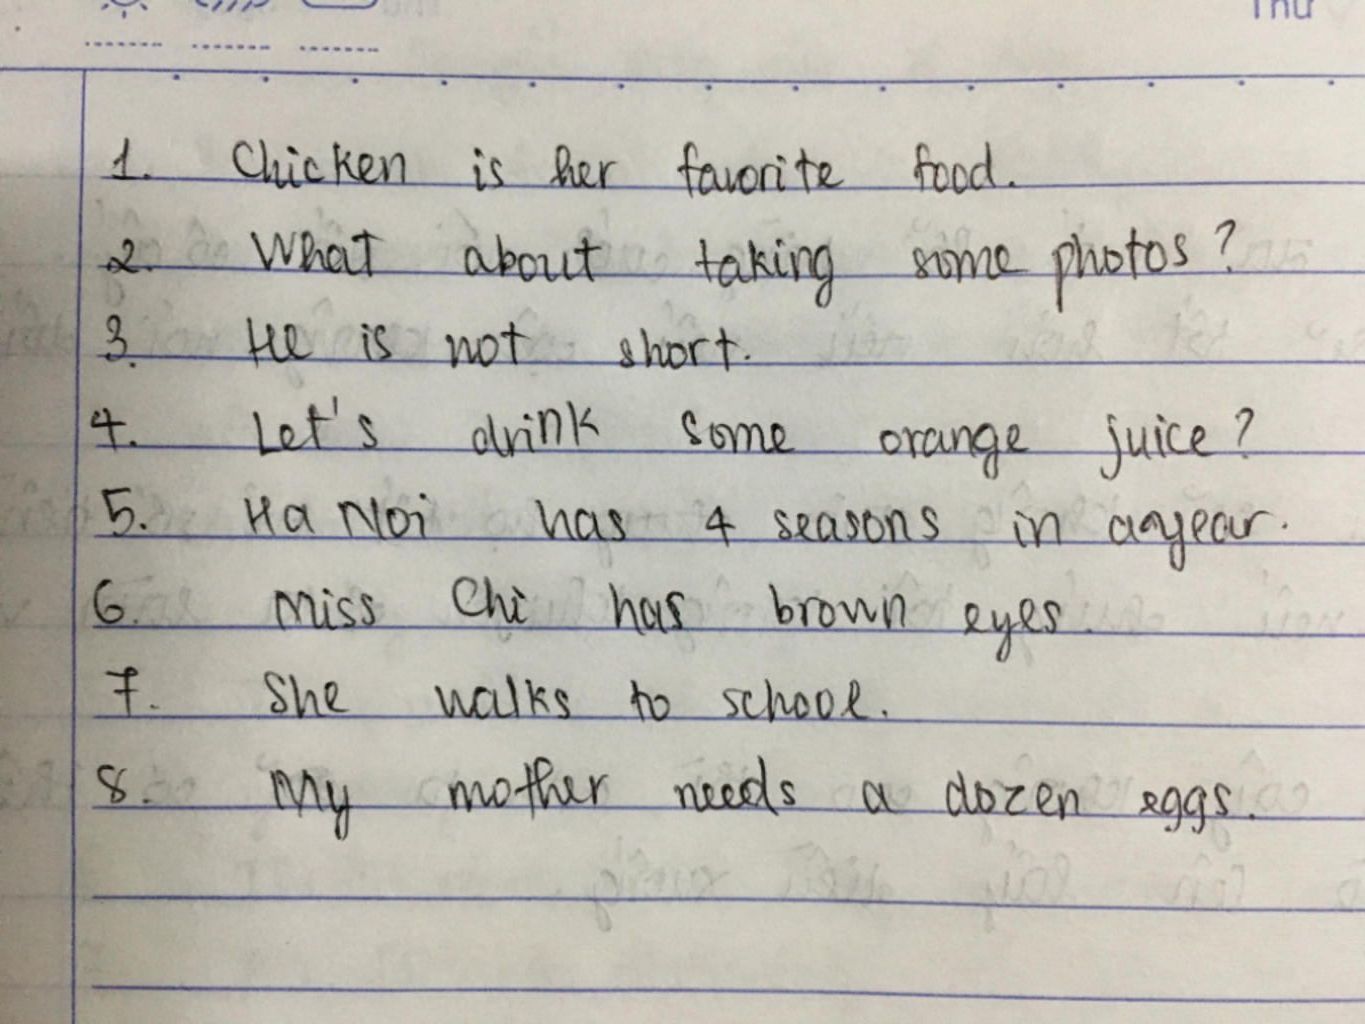 Thứ
1. Chicken is her favorite food.
2. What about taking some photos?
3. He is not short.
4. Let's drink some orange juice?
5. Ha Noi has 4 seasons in a year.
6. Miss Chi has brown eyes.
7. She walks to school.
8. My mother needs a dozen eggs.